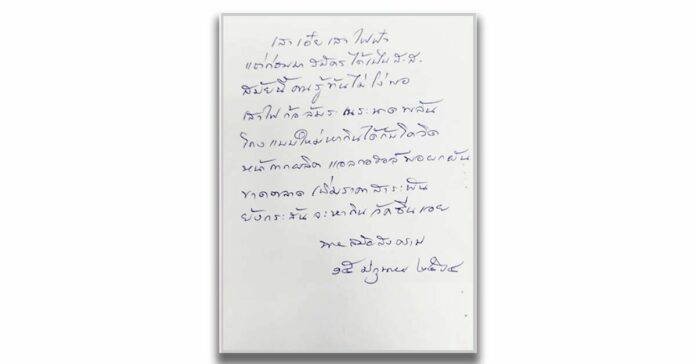 เสาเอ๋ย เสาไฟฟ้า
แต่ก่อนมา สมัครได้เป็น ส.ส.
สมัยนี้คนรู้ทันไม่โง่พอ
เสาไฟก็ล้มระเนระนาดพลัน
โกงแบบใหม่หากินได้กับโควิด
หน้ากากผลิต แอลกอฮอล์พอยกหัน
ขาดตลาด เพิ่มราคาสาระพัน
ยังกระสัน จะหากิน วัคซีนเอย
๑๕ ๒๕๖๔